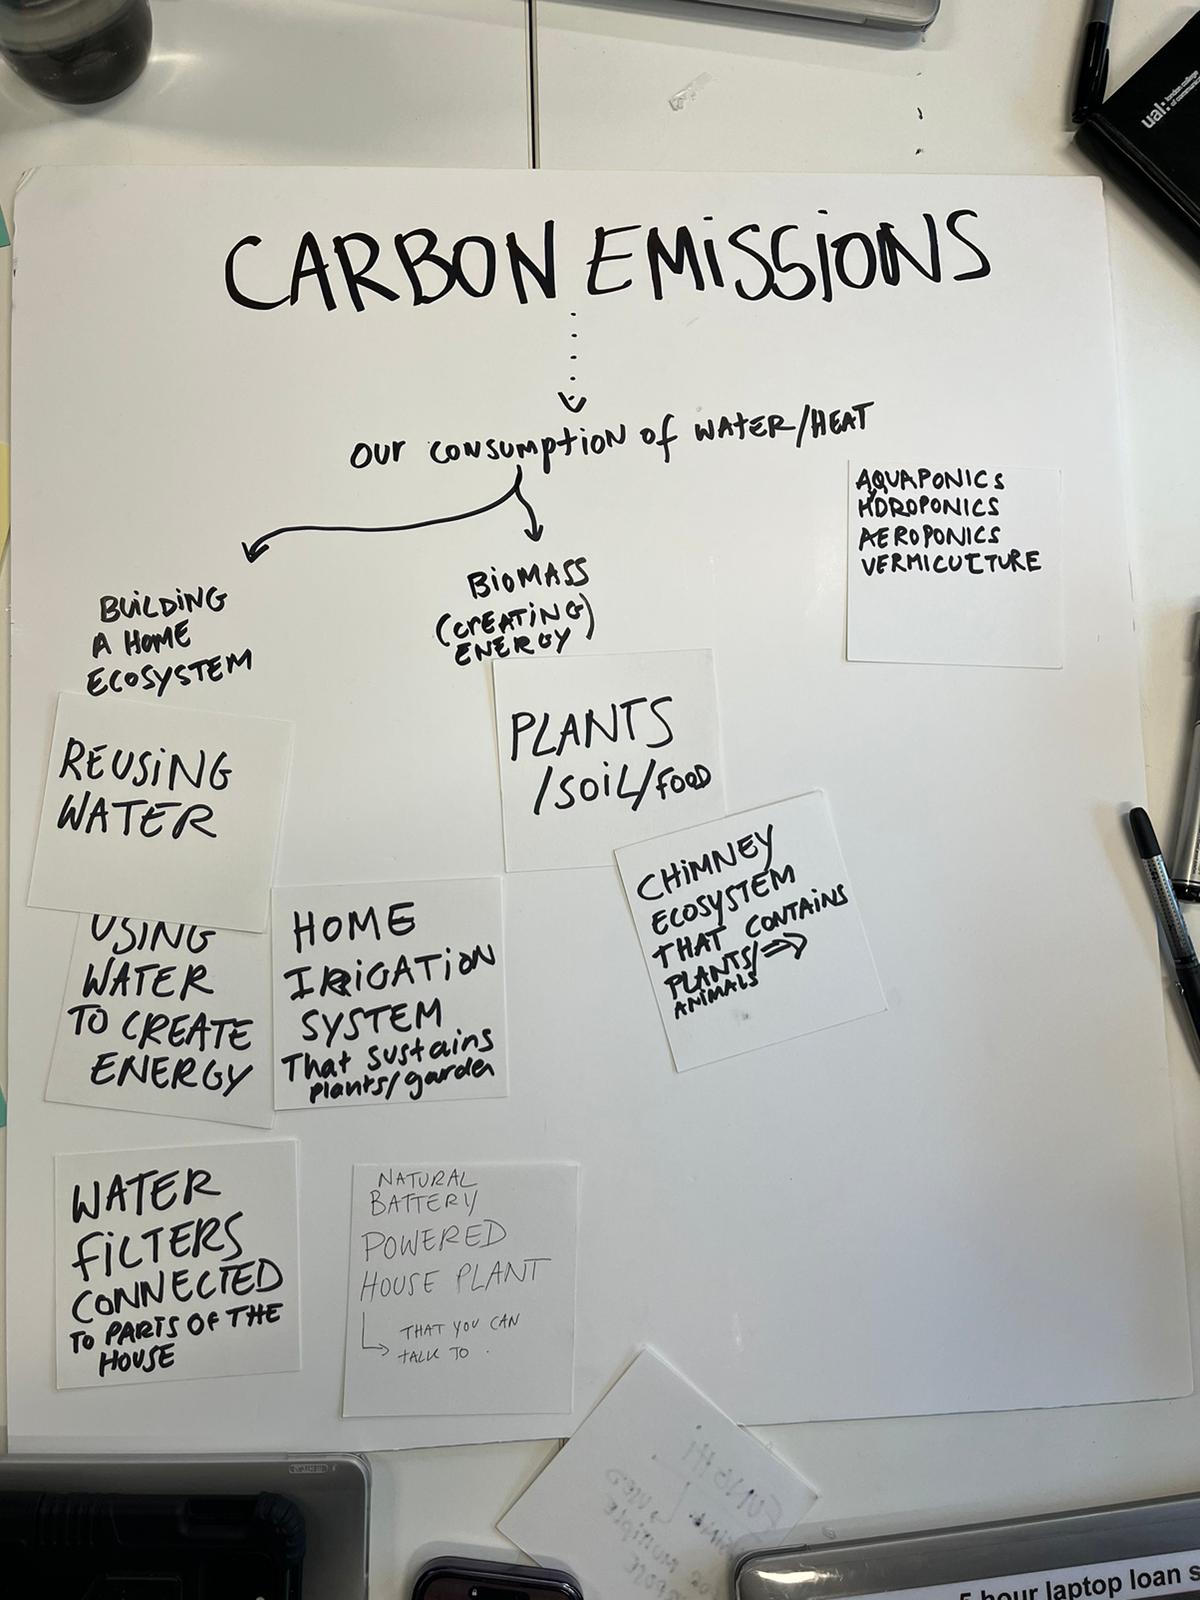 ual:
CARBON EMISSIONS
OUR CONSUMPTION OF WATER/HEAT
AQUAPONICS
HYDROPONICS
AEROPONICS
VERMICULTURE
BUILDING
A HOME
ECOSYSTEM
BIOMASS
(CREATING)
ENERGY
REUSING
WATER
PLANTS
/SOIL/FOOD
CHIMNEY
ECOSYSTEM
THAT CONTAINS
PLANTS/⇒
ANIMALS
USING
WATER
TO CREATE
ENERGY
HOME
IRRIGATION
SYSTEM
That sustains
plants/garden
WATER
FILTERS
CONNECTED
TO PARTS OF THE
HOUSE
NATURAL
BATTERY
POWERED
HOUSE PLANT
THAT YOU CAN
TALK TO.
hour laptop loan